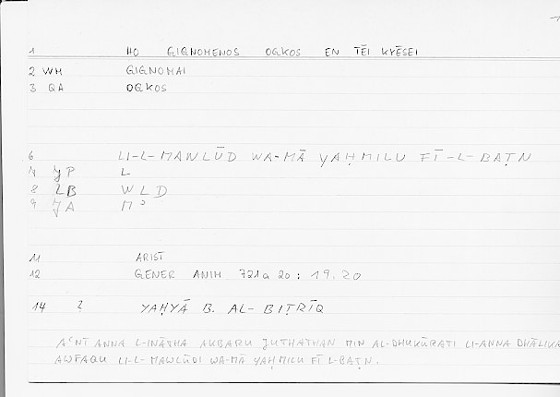 1 HO GIGNOMENOS OGKOS EN TĒI KYĒSEI
2 WM GIGNOMAI
3 QA OGKOS
6 LI-L-MAWLŪD WA-MĀ YAḤMILU FĪ-L-BAṬN
JP L
8 LB WLD
9 JA Mᵓ
11 ARIST
12 GENER ANIM 721a 20 : 19.20
14 ? YAḤYĀ B. AL-BIṬRĪQ
AᶜNĪ ANNA L-INĀTHA AKBARU JUTHATHAN MIN AL-DHUKŪRATI LI-ANNA DHĀLIKA
AWFAQU LI-L-MAWLŪDI WA-MĀ YAḤMILU FĪ L-BAṬN.